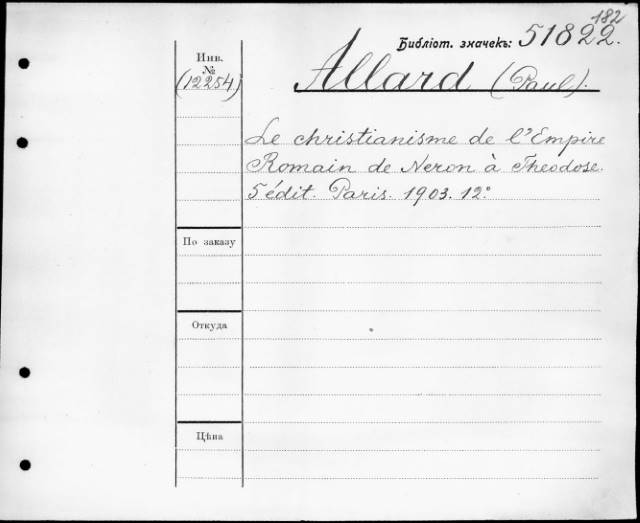 182
Библіот. значекъ: 51822.
Инв.
№
(12254)
Allard (Paul).
Le christianisme de l'Empire
Romain de Neron à Theodose.
5 édit. Paris. 1903. 12°
По заказу
Откуда
Цѣна